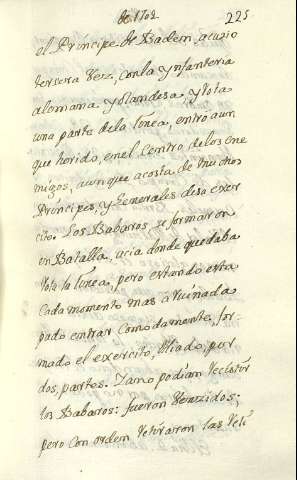 de 1702 225
el Príncipe de Badem, acuzio
tersera vezz, con la ynfanteria
alemana y olandesa, y Rota
una parte dela linea, entró aun
que herido, en el Centro delos ene
migos, aunque acosta de muchos
Príncipes, y Generales de su exer
cito. Los Babaros, se formaron
en Batalla, acia donde quedaba
Rota la linea, pero estando esta
Cada momento mas arruinada
pudo entrar Comodamente, for-
mado el exercito, Aliado, por
dos, partes. Ya no podian Rezistir
los Babaros: fueron Venzidos;
pero Con orden Retiraron las Reli